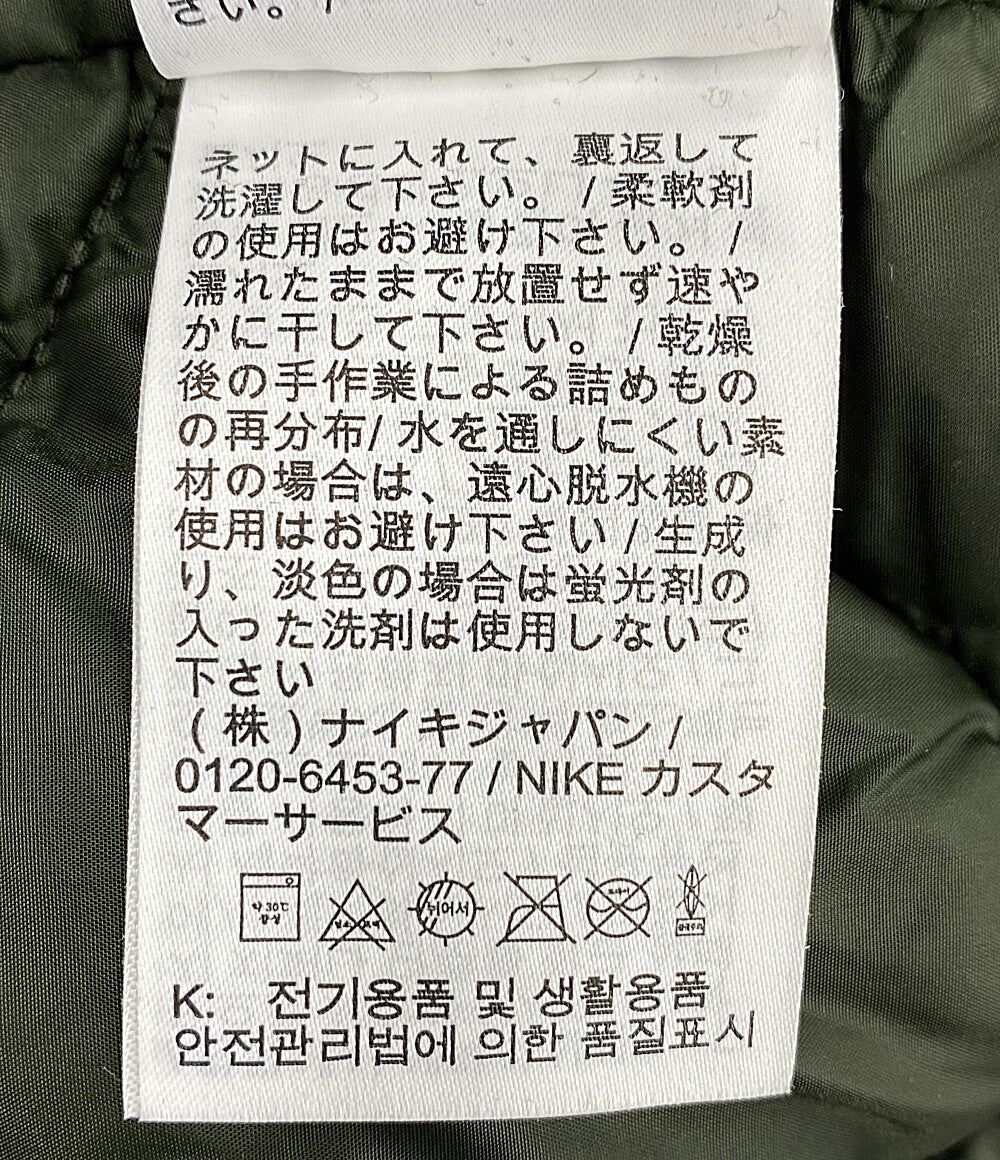 さい。/
ネットに入れて、裏返して
洗濯して下さい。 / 柔軟剤
の使用はお避け下さい。 /
濡れたままで放置せず速や
かに干して下さい。 / 乾燥
後の手作業による詰めもの
の再分布/ 水を通しにくい素
材の場合は、遠心脱水機の
使用はお避け下さい / 生成
り、淡色の場合は蛍光剤の
入った洗剤は使用しないで
下さい
(株)ナイキジャパン /
0120-6453-77 / NIKE カスタ
マーサービス
약 30℃ 뉘어서 드라이
중성
K: 전기용품 및 생활용품
안전관리법에 의한 품질표시